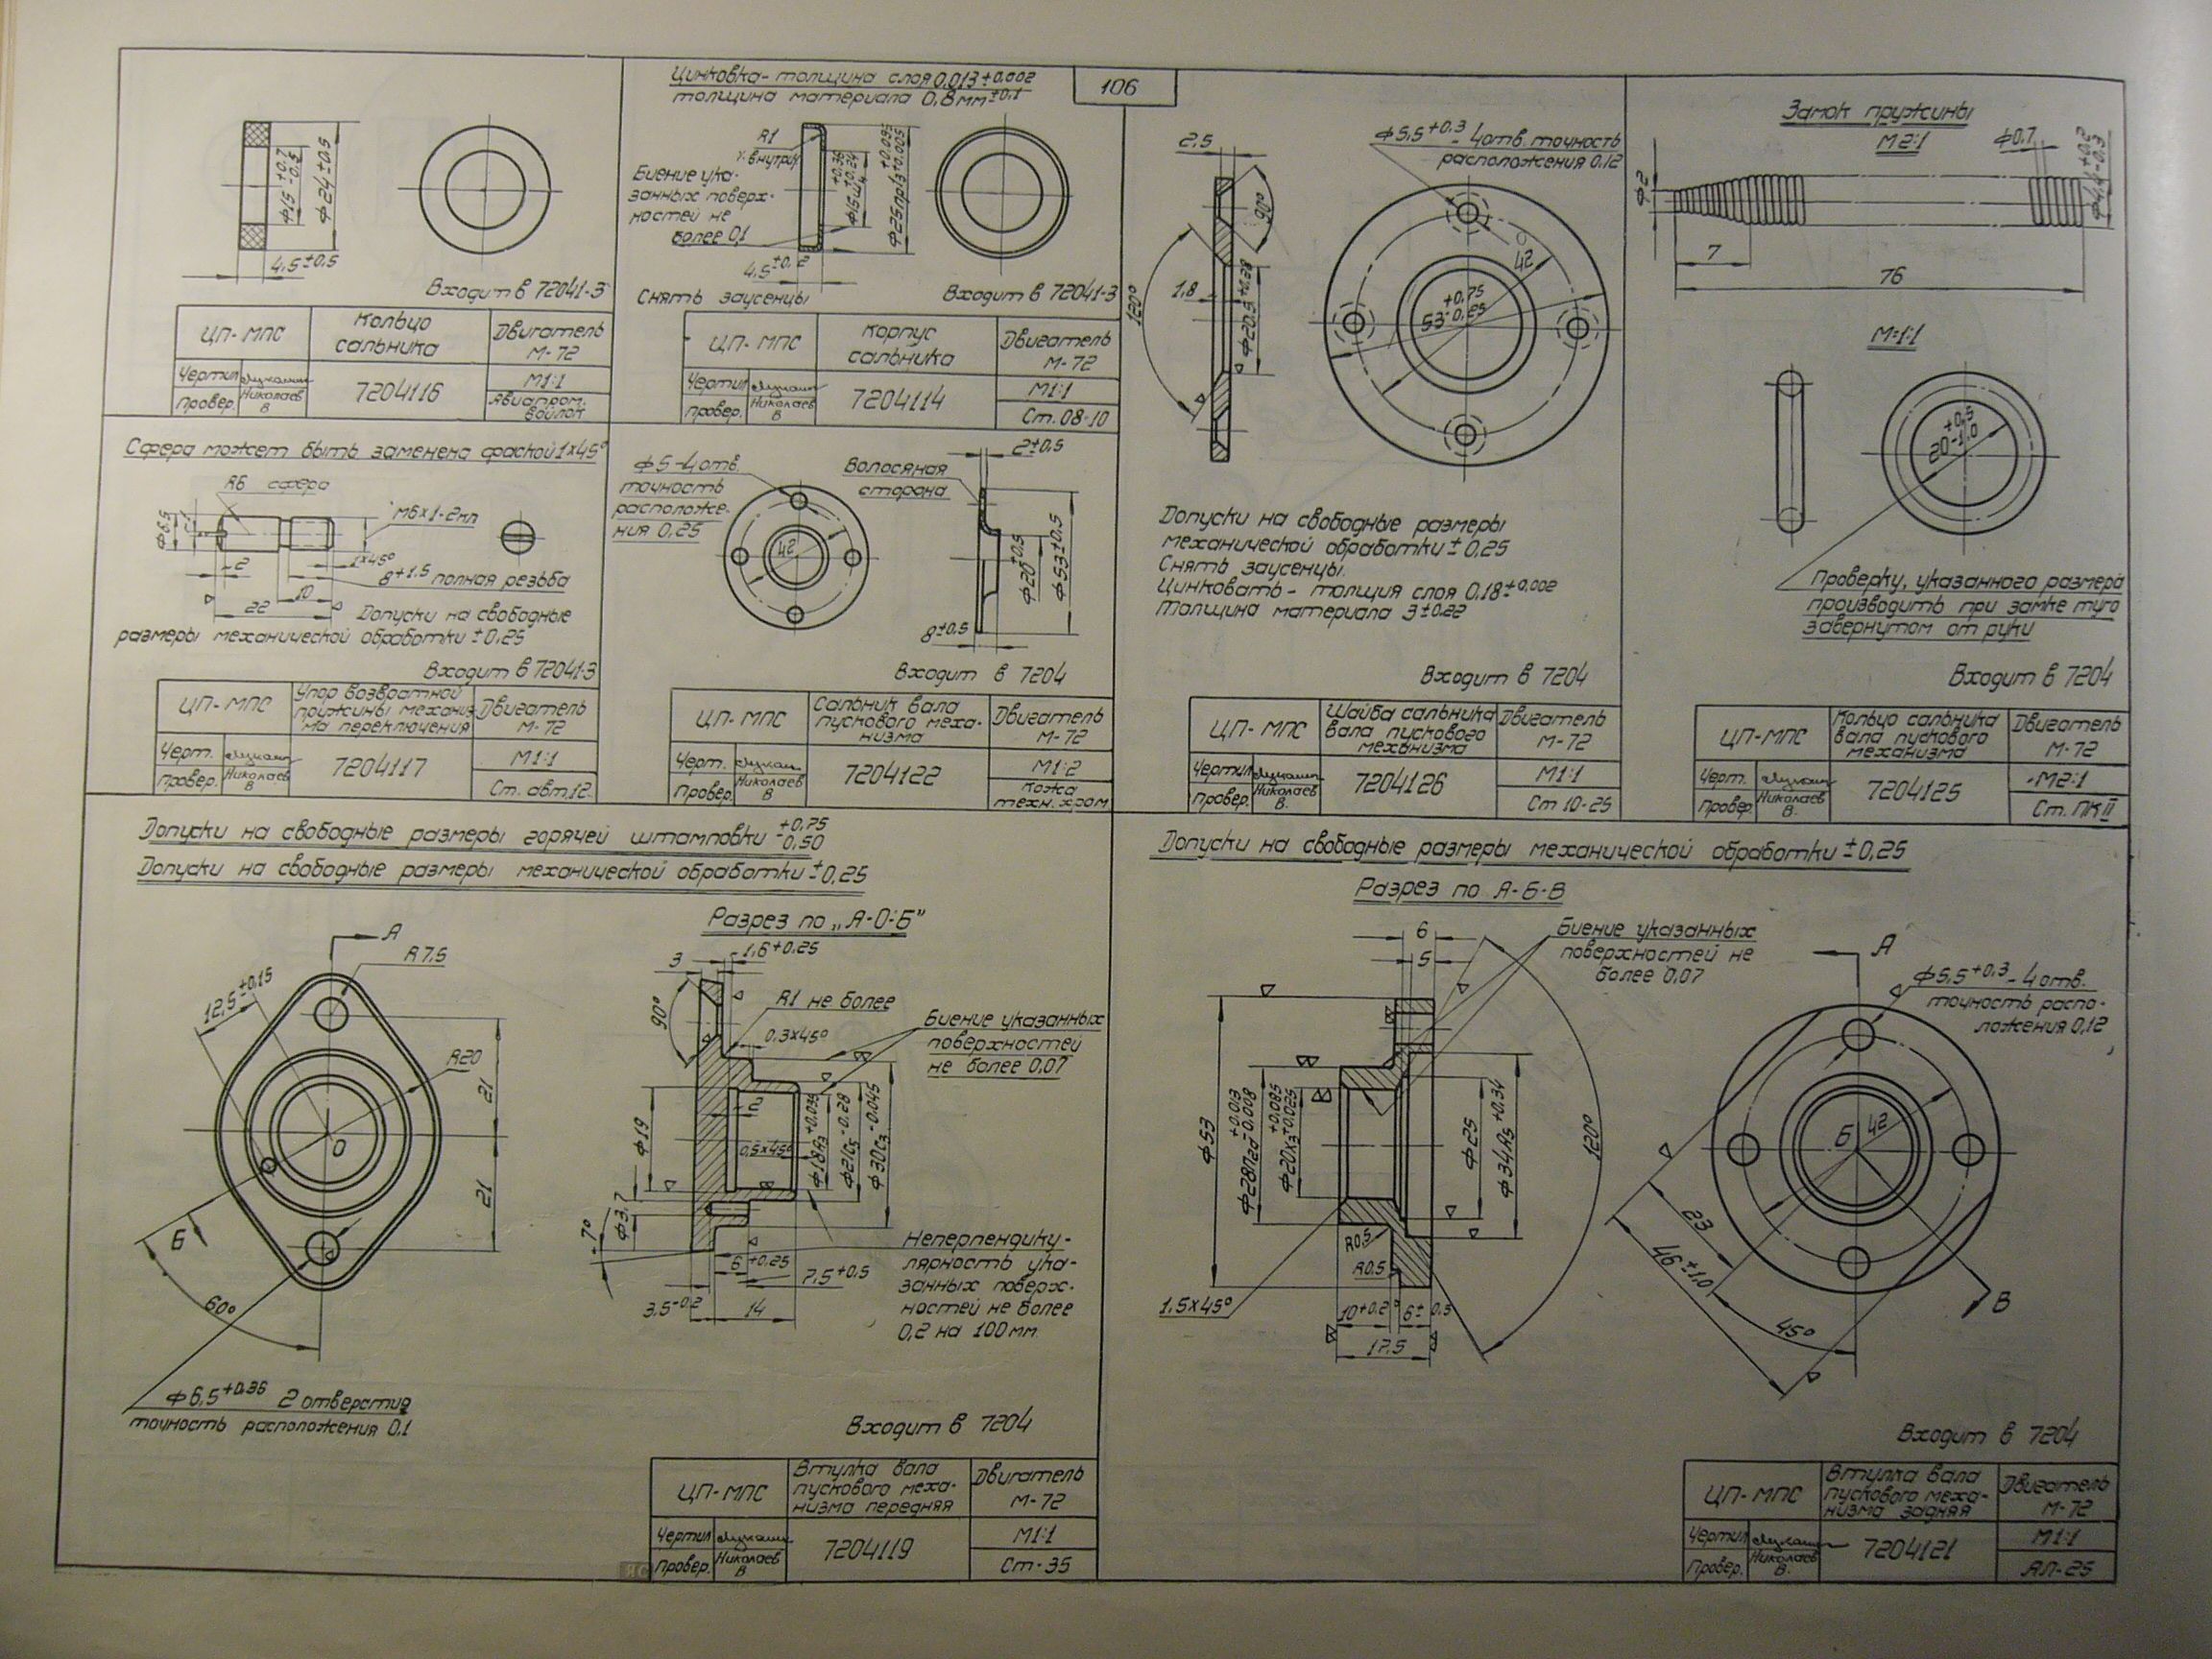 106
Φ15 +0.7 -0.5
Φ24±0.5
4,5±0.5
Входит в 72041-3
ЦП-МПС
Кольцо
сальника
Двигатель
М-72
Чертил
Провер.
Николаев
В
7204116
М1:1
Авиапром.
войлок
Цинковка-толщина слоя 0.013±0.002
толщина материала 0,8мм±0,1
R1
внутри
Биение ука-
занных поверх-
ностей не
более 0,1
4,5±0,2
Снять заусенцы
Входит в 72041-3
ЦП-МПС
Корпус
сальника
Двигатель
М-72
Чертил
Провер.
Николаев
В
7204114
М1:1
Ст. 08-10
2,5
Φ5,5+0.3 - 4отв. точность
расположения 0,12
90°
42
120°
1,8
Φ20.5+0.38
53 +0,75 -0,25
Допуски на свободные размеры
механической обработки ± 0,25
Снять заусенцы.
Цинковать - толщия слоя 0,18±0,002
толщина материала 3±0.22
Входит в 7204
ЦП-МПС
Шайба сальника
вала пускового
механизма
Двигатель
М-72
Чертил
Провер.
Николаев
В.
7204126
М1:1
Ст 10-25
Замок пружины
М2:1
Φ2
Φ0.7
7
76
М-1:1
20 +0,5 -1.0
Проверку, указанного размера
производить при замке туго
завернутом от руки
Входит в 7204
ЦП-МПС
Кольцо сальника
вала пускового
механизма
Двигатель
М-72
Черт.
Провер
Николаев
В.
7204125
М2:1
Ст. ПК II
Сфера может быть заменена фаской 1х45°
R6 сфера
М6х1-2кл
1х45°
Φ6.5
2
8+1.5 полная резьба
10
22
Допуски на свободные
размеры механической обработки ±0,25
Входит в 72041-3
ЦП-МПС
Упор возвратной
пружины механиз-
ма переключения
Двигатель
М-72
Черт.
Провер.
Николаев
В
7204117
М1:1
Ст. авт.12.
Φ5-4отв.
точность
расположе-
ния 0,25
Волосяная
сторона
2±0,5
42
Φ20±0,5
Φ53±0,5
8±0,5
Входит в 7204
ЦП-МПС
Сальник вала
пускового меха-
низма
Двигатель
М-72
Черт.
Провер.
Николаев
В
7204122
М1:2
Кожа
техн. хром
Допуски на свободные размеры горячей штамповки +0,75 -0,50
Допуски на свободные размеры механической обработки ± 0,25
Разрез по „А-О-Б"
А
R7,5
12,5±0,15
R20
21
21
О
Б
60°
Φ6,5+0.36 2 отверстия
точность расположения 0,1
3
1,6+0.25
90°
R1 не более
0,3х45°
Биение указанных
поверхностей
не более 0,07
Φ19
2
0,5х45°
Φ18А3+0.035
Φ21С5-0.28
Φ30С3-0.045
Φ3,7
7°
6+0,25
7,5+0,5
3,5-0.2
14
Неперпендику-
лярность ука-
занных поверх-
ностей не более
0,2 на 100мм.
Входит в 7204
ЦП-МПС
Втулка вала
пускового меха-
низма передняя
Двигатель
М-72
Чертил
Провер.
Николаев
В
7204119
М1:1
Ст-35
Допуски на свободные размеры механической обработки ± 0,25
Разрез по А-Б-В
6
5
Биение указанных
поверхностей не
более 0,07
А
Φ5,5+0.3 - 4отв.
точность распо-
ложения 0,12
Φ53
Φ20х3 +0.085 +0.025
Φ25
Φ34А5+0.34
120°
R0,5
R0,5
1,5х45°
10+0.2
6±0.3
17,5
Б
42
23
46±1.0
45°
В
Входит в 7204
ЦП-МПС
Втулка вала
пускового меха-
низма задняя
Двигатель
М-72
Чертил
Провер.
Николаев
В.
7204121
М1:1
АЛ-25